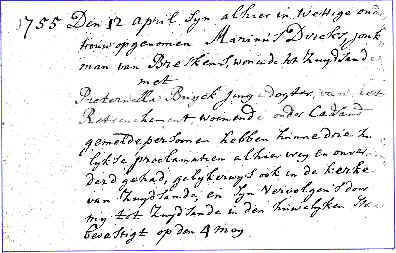 1755 Den 12 april. Syn alhier in Wettige onder
trouw opgenomen Marinus Dircks, jonk
man van Breskens, wonende tot Zuydsande
met
Pieternella Buyck jonge dogter van het
Retrenchement woenende onder Cadsand
gemelde persoonen hebben hunne drie hu
lykse proclamatien alhier vry en onver
derd gehad, gelykerwys ook in de kerke
van Zuydsande, en syn vervolgens door
my tot Zuydsande in den huwelyken Sta
bevestigt op den 4 mey